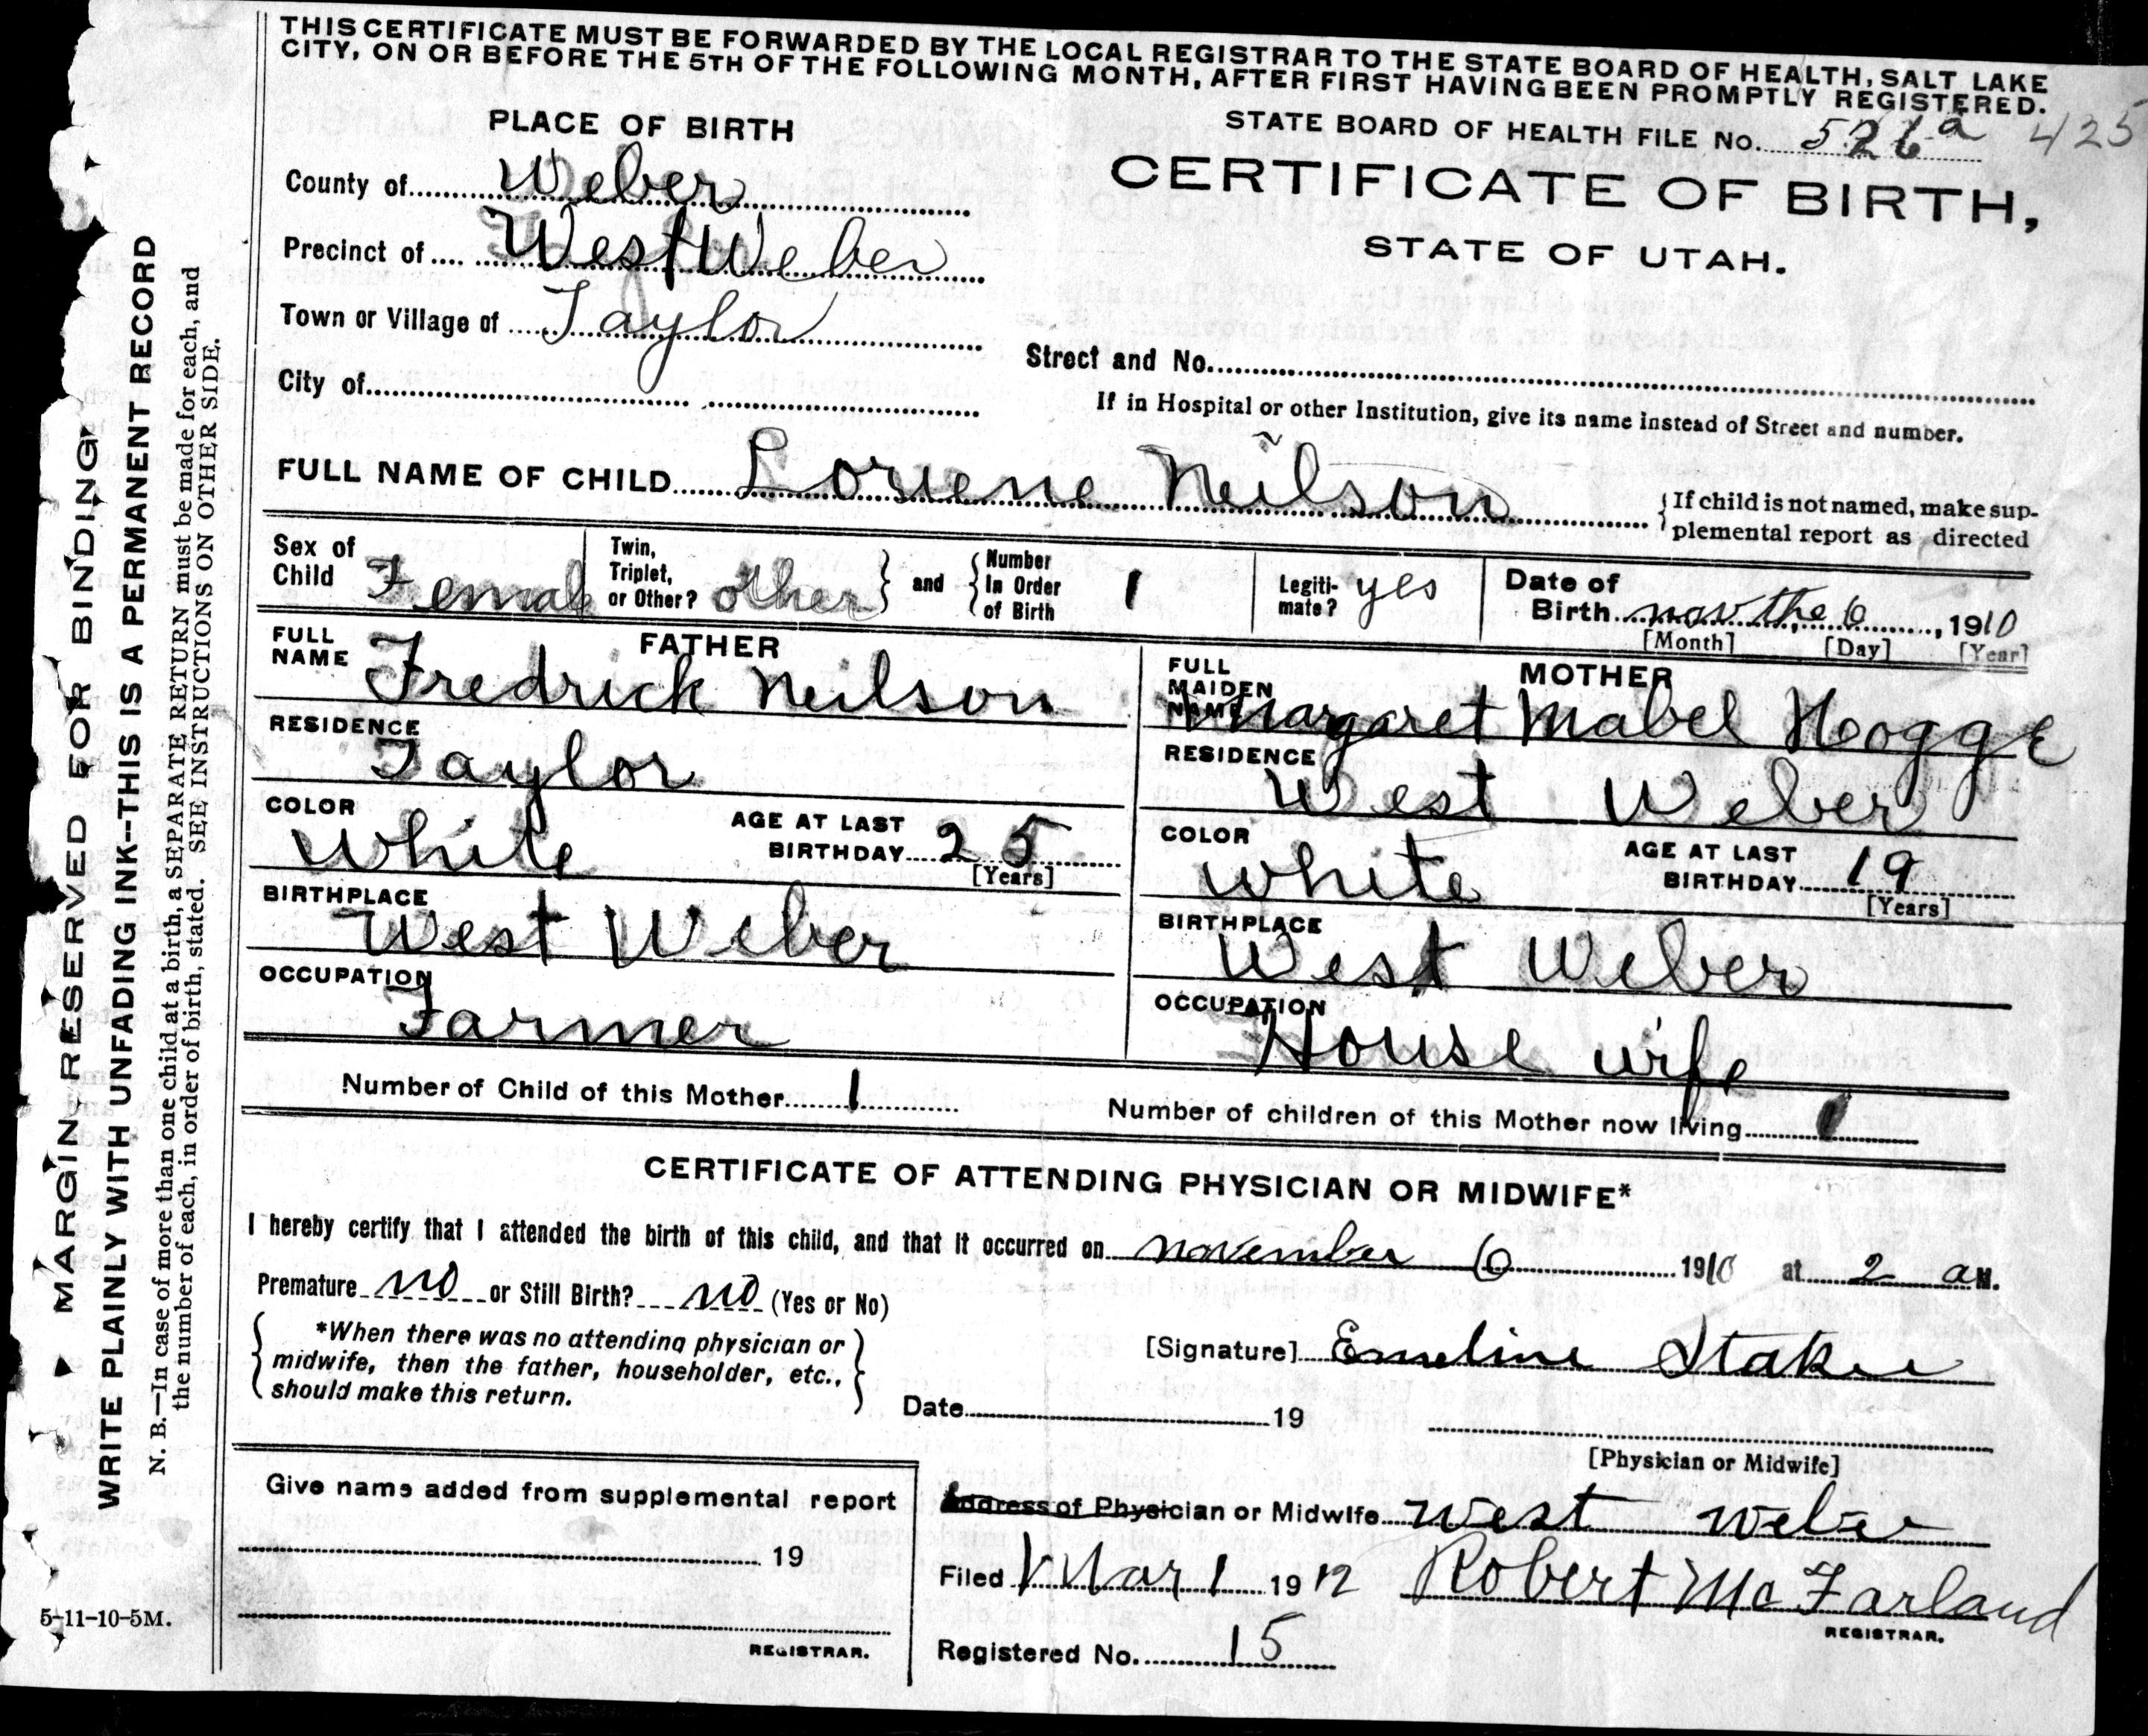 THIS CERTIFICATE MUST BE FORWARDED BY THE LOCAL REGISTRAR TO THE STATE BOARD OF HEALTH, SALT LAKE
CITY, ON OR BEFORE THE 5TH OF THE FOLLOWING MONTH, AFTER FIRST HAVING BEEN PROMPTLY REGISTERED.
STATE BOARD OF HEALTH FILE No. 526a 425
PLACE OF BIRTH
CERTIFICATE OF BIRTH,
STATE OF UTAH.
County of Weber
Precinct of West Weber
Town or Village of Taylor
Street and No.
City of
If in Hospital or other Institution, give its name instead of Street and number.
FULL NAME OF CHILD Loriene Neilson
{If child is not named, make sup-
plemental report as directed
Sex of Child Female
Twin, Triplet, or Other? other } and { Number In Order of Birth 1
Legiti-mate? yes
Date of Birth nov the 6, 1910
[Month] [Day] [Year]
FATHER
FULL NAME Fredrick Neilson
RESIDENCE Taylor
COLOR White AGE AT LAST BIRTHDAY 25
[Years]
BIRTHPLACE West Weber
OCCUPATION Farmer
MOTHER
FULL MAIDEN NAME Margaret Mabel Hogge
RESIDENCE West Weber
COLOR white AGE AT LAST BIRTHDAY 19
[Years]
BIRTHPLACE West Weber
OCCUPATION House wife
Number of Child of this Mother 1
Number of children of this Mother now living 1
CERTIFICATE OF ATTENDING PHYSICIAN OR MIDWIFE*
I hereby certify that I attended the birth of this child, and that it occurred on november 6 1910 at 2 a M.
Premature no or Still Birth? no (Yes or No)
{ *When there was no attending physician or
midwife, then the father, householder, etc.,
should make this return. }
[Signature] Emeline Staker
Date 19
[Physician or Midwife]
Give name added from supplemental report
19
REGISTRAR.
Address of Physician or Midwife West Weber
Filed Mar 1 1912 Robert McFarland
REGISTRAR.
Registered No. 15
5-11-10-5M.
MARGIN RESERVED FOR BINDING
WRITE PLAINLY WITH UNFADING INK--THIS IS A PERMANENT RECORD
N. B.—In case of more than one child at a birth, a SEPARATE RETURN must be made for each, and
the number of each, in order of birth, stated. SEE INSTRUCTIONS ON OTHER SIDE.